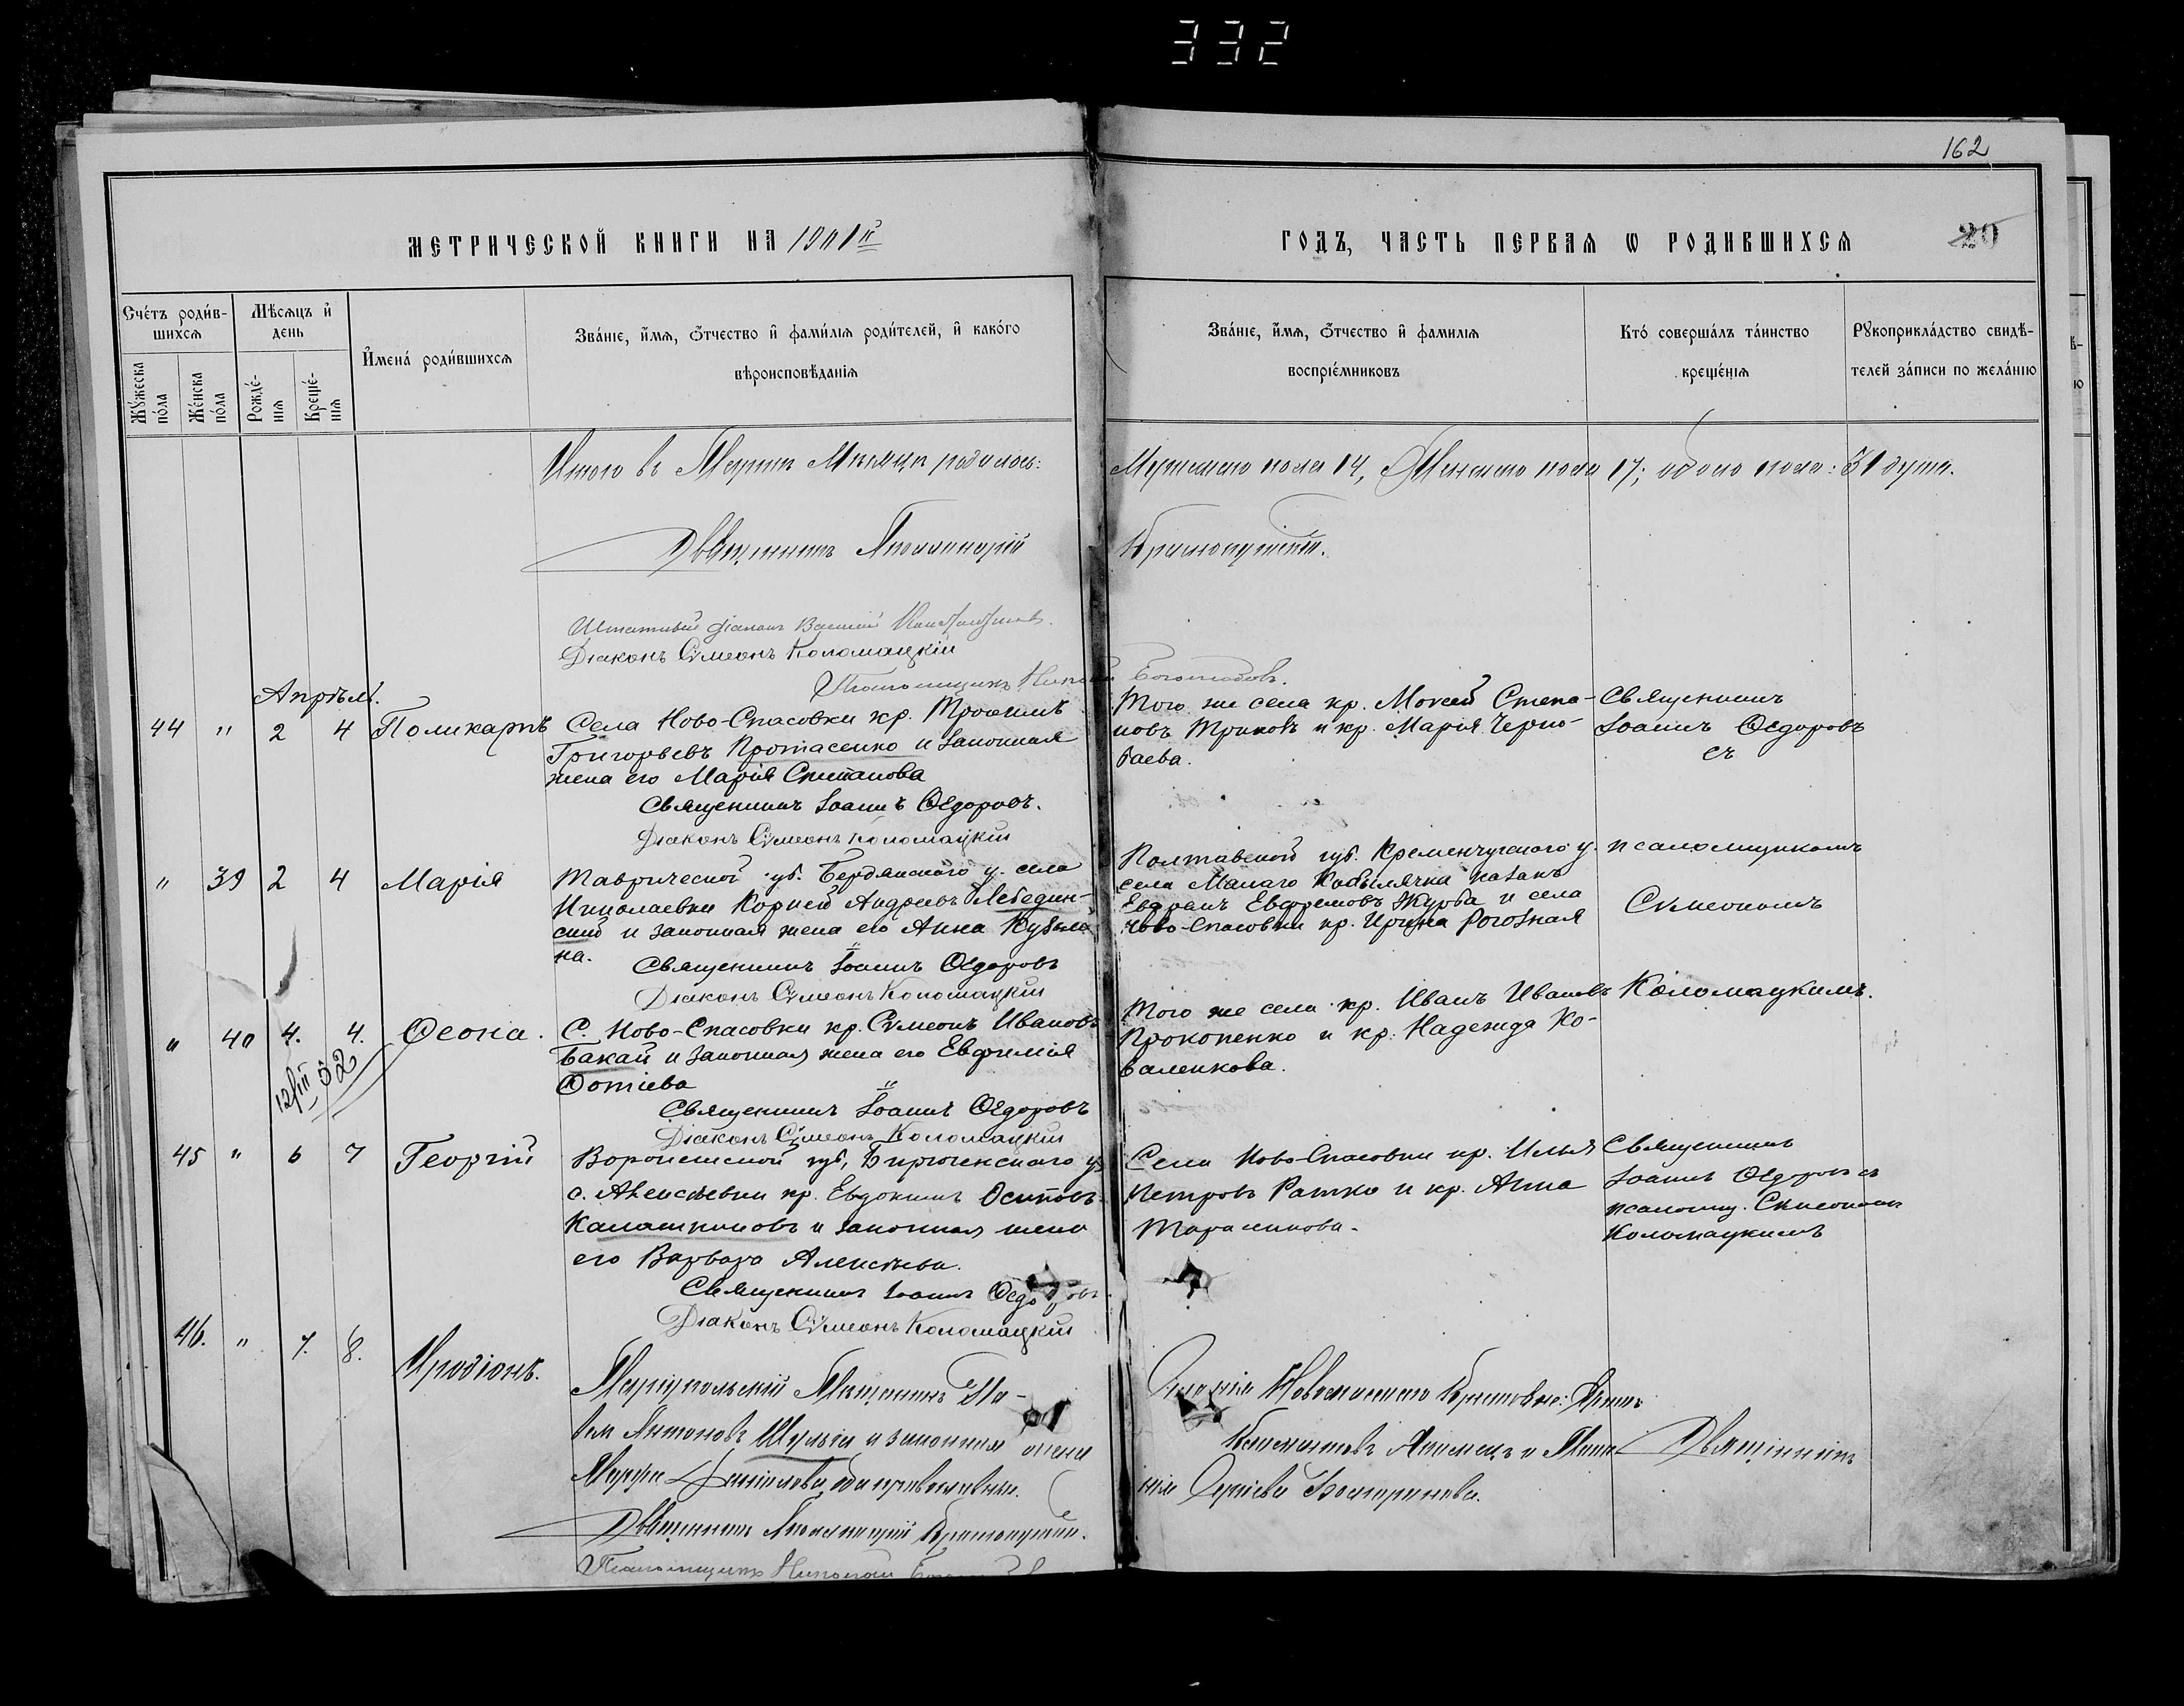 332
162
МЕТРИЧЕСКОЙ КНИГИ НА 1901й
ГОДЪ, ЧАСТЬ ПЕРВАЯ Ѡ РОДИВШИХСЯ
20
Сче́тъ роди́в-
шихся
Мѣсяцъ и҆
день
Му́жеска
по́ла
Же́нска
по́ла
Рожде́-
нїя
Креще́-
нїя
И҆мена́ роди́вшихся
Зва́нїе, и҆́мя, ѻ҆́тчество и҆ фами́лїя роди́телей, и҆ како́го
вѣроисповѣ́данїя
Зва́нїе, и҆́мя, ѻ҆́тчество и҆ фамилїя
воспрїе́мниковъ
Кто́ соверша́лъ та́инство
креще́нїя
Рꙋкоприкла́дство свидѣ́-
телей за́писи по жела́нїю
Итого въ Мартѣ Мѣсяцѣ родилось:
Мужескаго пола 14, Женскаго пола 17; обоего пола: 31 душа.
Священникъ
Штатный діаконъ Василій
Діаконъ Сѵмеонъ Коломацкій
Псаломщикъ
Апрѣль.
44 " 2 4 Поликарпъ
Села Ново-Спасовки кр. Трофимъ
Григорьевъ Протасенко и законная
жена его Марія Степанова
Священникъ Іоаннъ Ѳедоровъ.
Діаконъ Сѵмеонъ Коломацкій
Того же села кр. Моисей Степа-
новъ и кр. Марія Черно-
баева.
Священникъ
Іоаннъ Ѳедоровъ
съ
" 39 2 4 Марія
Таврической губ. Бердянскаго у. села
Николаевки Корней Андреевъ Лебедин-
скій и законная жена его Анна
на.
Священникъ Іоаннъ Ѳедоровъ
Діаконъ Сѵмеонъ Коломацкій
Полтавской губ. Кременчугскаго у.
села Малаго Кобылячка казакъ
Евфремовъ Журба и села
Ново-Спасовки кр. Ирина Рогозная
псаломщикомъ
Сѵмеономъ
" 40 4. 4. Ѳеона.
12/III 32
С. Ново-Спасовки кр. Сѵмеонъ Ивановъ
Бакай и законная жена его Евфимія
Фотіева
Священникъ Іоаннъ Ѳедоровъ
Діаконъ Сѵмеонъ Коломацкій
Того же села кр. Иванъ Ивановъ
Прокопенко и кр. Надежда Ко-
валенкова.
Коломацкимъ.
45 " 6 7 Георгій
Воронежской губ. Бирюченскаго у.
с. Алексѣевки кр. Евдокимъ Осиповъ
Калашниковъ и законная жена
его Варвара Алексѣева.
Священникъ Іоаннъ Ѳедоровъ.
Діаконъ Сѵмеонъ Коломацкій
Села Ново-Спасовки кр. Илья
Петровъ Ратко и кр. Анна
Священникъ
Іоаннъ Ѳедоровъ съ
псаломщ. Сѵмеономъ
Коломацкимъ
46. " 7. 8. Иродіонъ.
Маріупольскій Мѣщанинъ
Антоновъ Шульга и законная жена
Марфа Даніилова, оба православные.
Священникъ
Псаломщикъ Николай
Священникъ